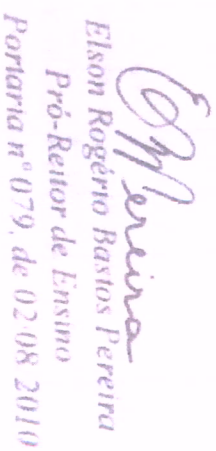 EMPereira
Elson Rogério Bastos Pereira
Pró-Reitor de Ensino
Portaria nº 079, de 02.08.2010